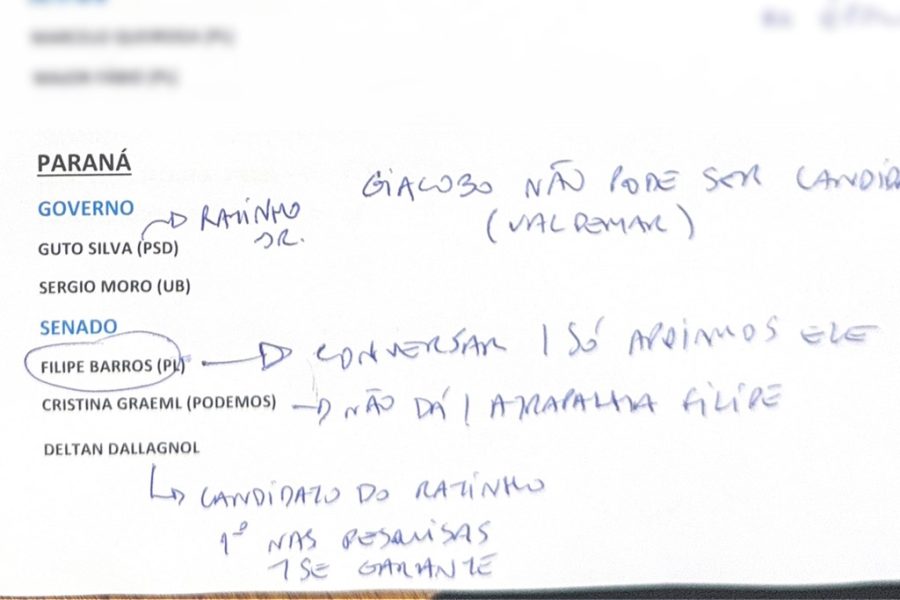 PARANÁ
GIACOBO NÃO PODE SER CANDID
(VALDEMAR)
GOVERNO
RATINHO
JR.
GUTO SILVA (PSD)
SERGIO MORO (UB)
SENADO
FILIPE BARROS (PL)
CONVERSAR / SÓ APOIAMOS ELE
CRISTINA GRAEML (PODEMOS)
NÃO DÁ / ATRAPALHA FILIPE
DELTAN DALLAGNOL
CANDIDATO DO RATINHO
1º NAS PESQUISAS
/ SE GARANTE